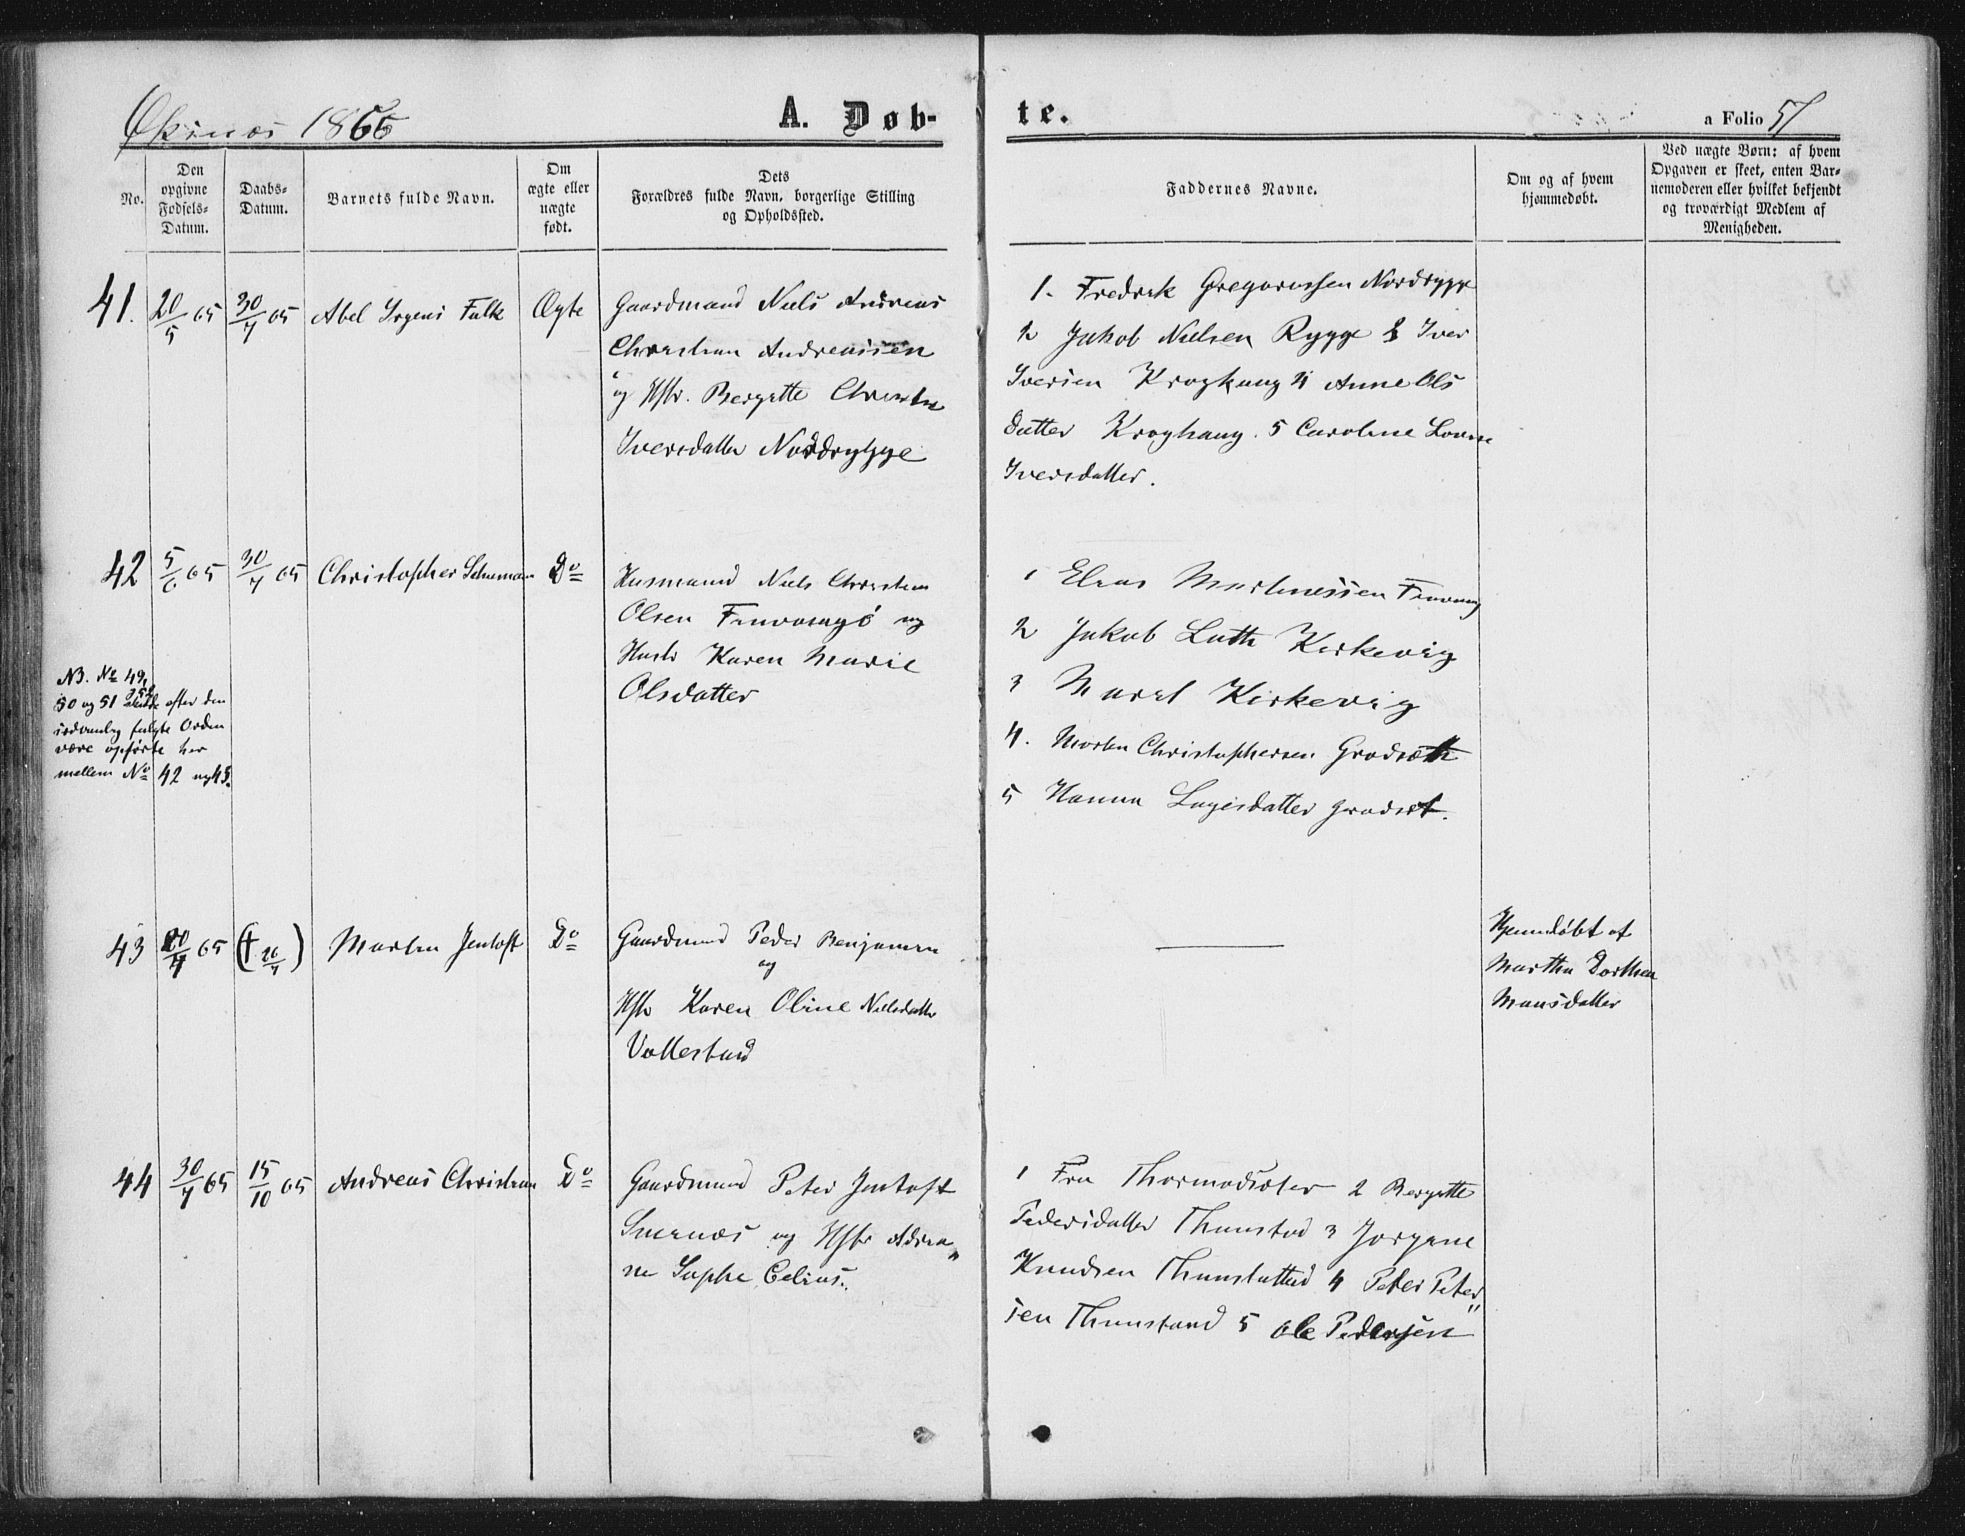 Øksnæs 1865
A. Døb-
te.
a Folio 51
No.
Den
opgivne
Fødsels-
Datum.
Daabs-
Datum.
Barnets fulde Navn.
Om
ægte eller
uægte
født.
Dets
Forældres fulde Navn, borgerlige Stilling
og Opholdssted.
Faddernes Navne.
Om og af hvem
hjemmedøbt.
Ved uægte Børn: af hvem
Opgaven er skeet, enten Bar-
nemoderen eller hvilket bekjendt
og troværdigt Medlem af
Menigheden.
41. 20/5 65 30/7 65 Abel Falk Ægte
Gaardmand Niels Andreas
Christian Andreassen
og Hstr. Bergitte Christine
Iversdatter Nordrygge
1. Fredrik Gregoriussen Nordrygge
2 Jakob Nielsen Rygge 3 Iver
Iversen Kroghaug 4 Anne Ols
datter Kroghaug. 5 Caroline Lovise
Iversdatter.
42 5/6 65 30/7 65 Christopher Schuman Do
Husmand Niels Christian
Olsen og
Hustr Karen Marie
Olsdatter
1 Elias Martinessen
2 Jakob Luth Kirkevig
3 Maril Kirkevig
4. Morten Christophersen Grodsæth
5 Hanna Grodset.
NB. No 49,
50 og 51 skulde efter den
sedvanlig fulgte Orden
være opførte her
mellem No 42 og 43.
43 20/7 65 († 26/7) Morten Jentoft Do
Gaardmand Peder Benjamin
og
Hstr Karen Oline Nielsdatter
Vottestad
Hjemdøbt af
Martha Dorthea
Monsdatter
44 30/7 65 15/10 65 Andreas Christian Do
Gaardmand Peter Jentoft
Smernæs og Hstr Adria„
ne Sophe Celius.
1 Fru 2 Bergitte
Pedersdatter Thunstad 3 Jørgine
Knudsen 4 Peter Peter„
sen Thunstand 5 Ole Pedersen